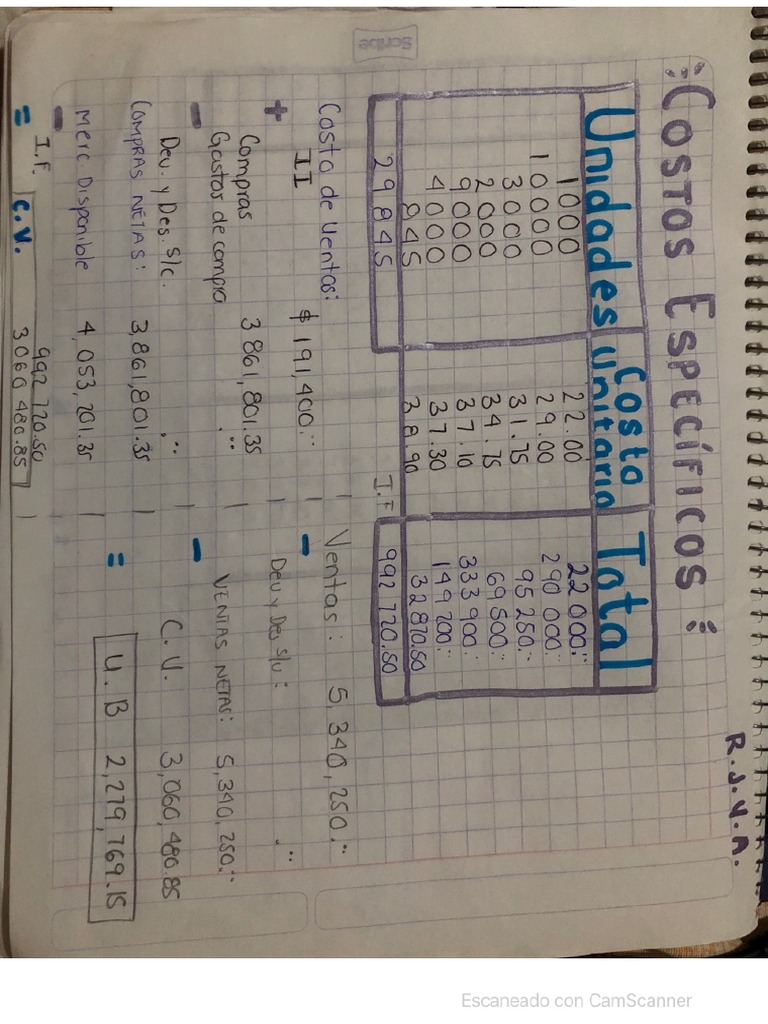 Scribe
R.J.V.A.
:Costos Específicos:
Unidades Costo Unitario Total
1000 22.00 22000.--
10000 29.00 290 000.--
3000 31.75 95 250.--
2000 34.75 69 500.--
9000 37.10 333 900.--
4000 37.30 149 200.--
845 38.90 32 870.50
29845 I.F 992 720.50
Costo de Ventas:
II $ 191,400.--
+ Compras 3 861,801.35
Gastos de compra --
- Dev. y Des. S/c. --
COMPRAS NETAS: 3,861,801.35
Merc Disponible 4,053,201.35
- I.F. 992 720.50
= C.V. 3060 480.85
Ventas: 5,340,250.--
- Dev y Des s/v: --
VENTAS NETAS: 5,340,250.--
- C.V. 3,060,480.85
= U.B 2,279,769.15
Escaneado con CamScanner